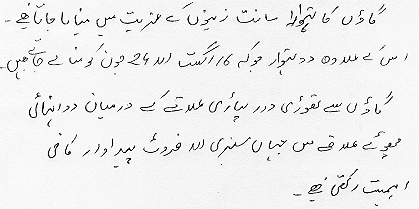 گاؤں کا تہوار سانت زینوں کے عزیت میں منایا جاتا ہے۔
اس کے علاوہ دو تہوار جو کہ 16 اگست اور 24 جون کو منائے جاتے ہیں۔
گاؤں سے تھوڑی دور پہاڑی علاقے کے درمیان دو انتہائی
چھوٹے علاقے میں جہاں سبزی اور فروٹ پیداوار کافی
اہمیت رکھتی ہے۔